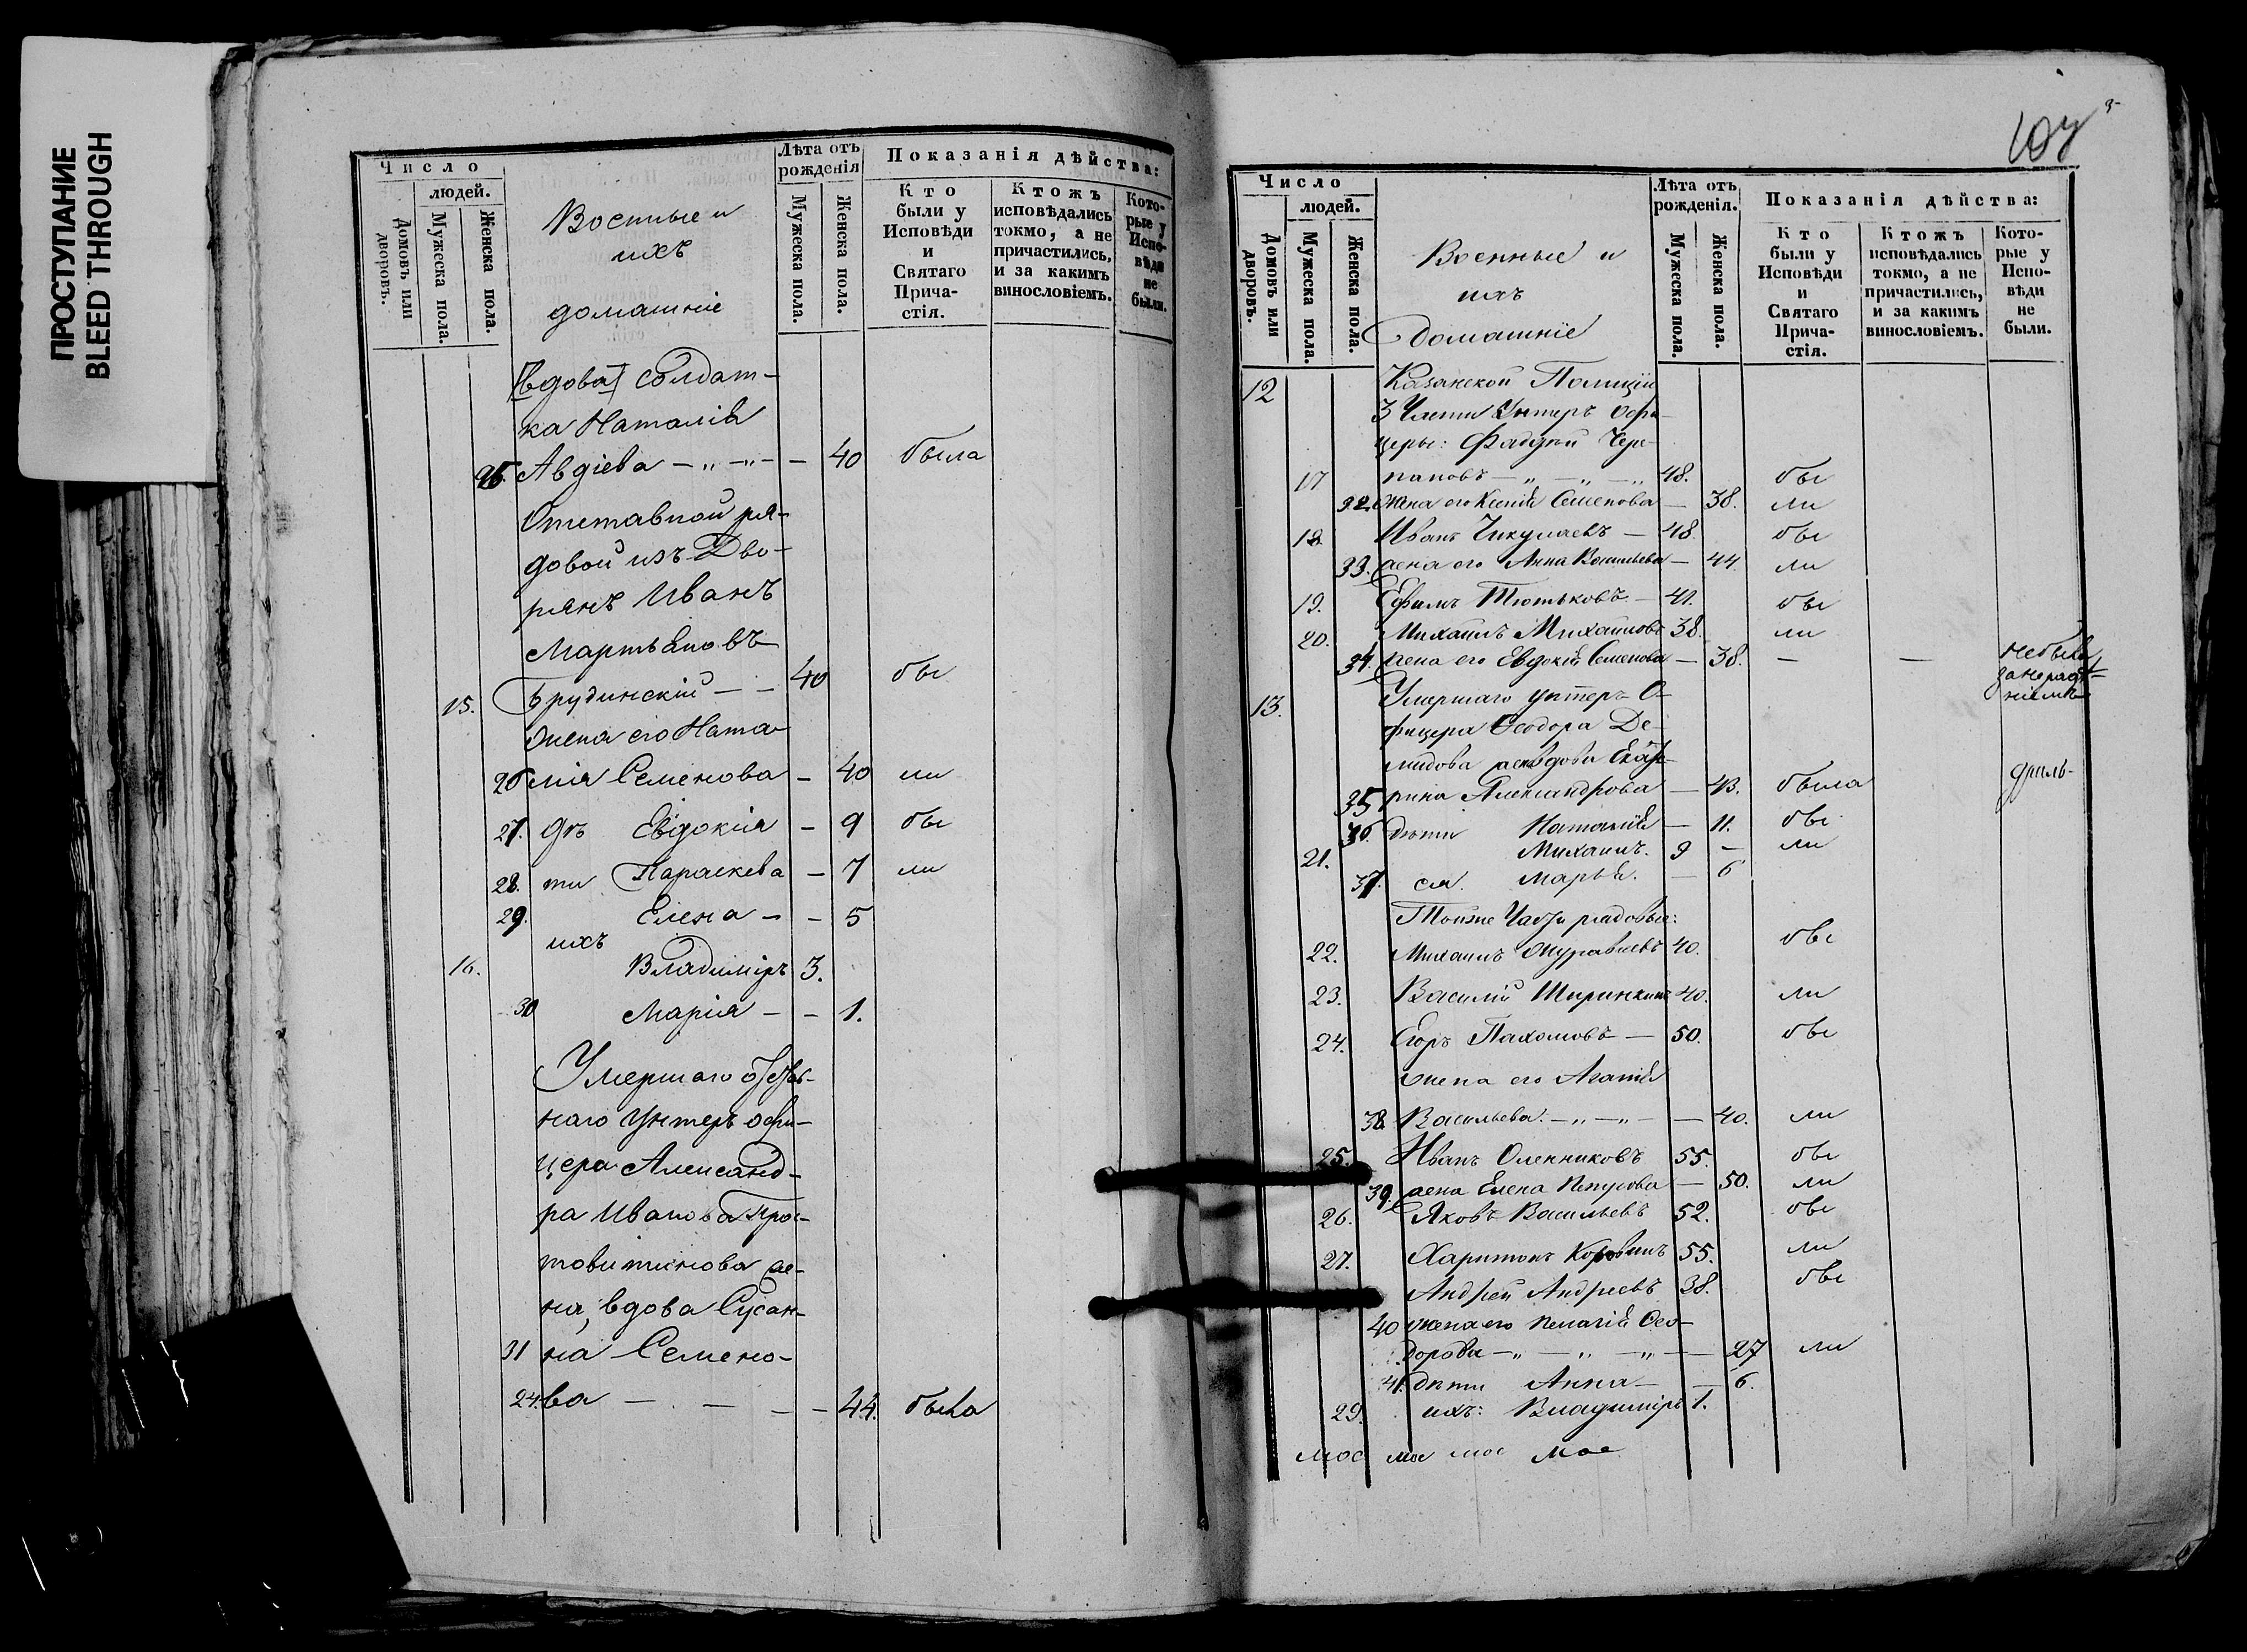 ПРОСТУПАНИЕ
BLEED THROUGH
Число
людей.
Домовъ или дворовъ.
Мужеска пола.
Женска пола.
Военные и
ихъ
домашніе
Лѣта отъ рожденія
Мужеска пола.
Женска пола.
Показанія дѣйства:
Кто были у Исповѣди и Святаго Прича-стія.
Ктожъ исповѣдались токмо, а не причастились, и за какимъ винословіемъ.
Кото-рые у Испо-вѣди не были.
[вдова] солдат-
ка Наталія
25. Авдіева - „ - „ - - 40 была
Отставной ря-
довой изъ Дво-
рянъ Иванъ
Мартьяновъ
15. Брудинскій - - 40 бы
жена его Ната-
26 лія Семенова - 40 ли
27. дѣ Евдокія - 9 бы
28. ти Параскева - 7 ли
29. Елена - - 5
ихъ
16. Владиміръ 3.
30 Марія - - 1.
Умершаго отстав-
наго унтеръ офи-
цера Александ-
ра Иванова
же-
на, вдова Сусан-
31 на Семено-
24. ва - - - - 44. была
107
Число
людей.
Домовъ или дворовъ.
Мужеска пола.
Женска пола.
Военные и
ихъ
Домашніе
Лѣта отъ рожденія.
Мужеска пола.
Женска пола.
Показанія дѣйства:
Кто были у Исповѣди и Святаго Прича-стія.
Ктожъ исповѣдались токмо, а не причастились, и за какимъ винословіемъ.
Кото-рые у Испо-вѣди не были.
12 Казанской Полиціи
3 Части Унтеръ офи-
церы: Фаддей Чере-
17 пановъ - „ - „ - „ 48. бы
32. жена его Ксенія Семенова - 38. ли
18. Иванъ Чикулаевъ - 48. бы
33. жена его Анна Васильева - 44. ли
19. Ефимъ Тютьковъ - 41. бы
20. Михаилъ Михайловъ 38. ли
34. жена его Евдокія Семенова - 38. - - не была
за нерадѣ-
ніемъ
13. Умершаго унтеръ О-
фицера Ѳеодора Де-
мидова жена вдова Екате-
35 рина Александрова - 43. была
36. дѣти Наталія - 11. бы
21. Михаилъ. 9 - ли
37. ея. Марья. - 6
Тойже Части рядовые:
22. Михаилъ Журавлевъ 40. бы
23. Василій Ширинкинъ 40. ли
24. Егоръ Пахомовъ - 50. бы
жена его Агапія
38. Васильева. - „ - „ - - 40. ли
25. Иванъ Оленниковъ 55. бы
39. жена Елена - 50. ли
26. Яковъ Васильевъ 52. бы
27. Харитонъ Коровинъ 55. ли
Андрей Андреевъ 38. бы
40 жена его Пелагія Ѳео-
дорова - „ - „ - „ - 27 ли
41. дѣти Анна - - 6.
29. ихъ: Владиміръ 1.